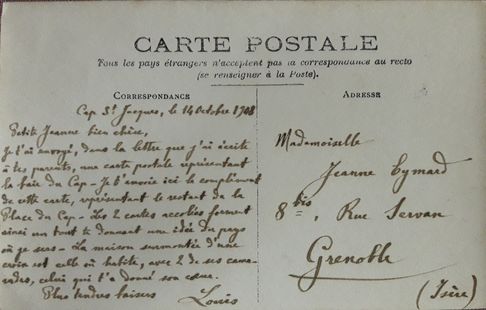 CARTE POSTALE
Tous les pays étrangers n'acceptent pas la correspondance au recto
(se renseigner à la Poste).
CORRESPONDANCE
Cap St Jacques, le 14 Octobre 1908
Petite Jeanne bien chère,
Je t'ai envoyé, dans la lettre que j'ai écrite
à tes parents, une carte postale représentant
la baie du Cap - Je t'envoie ici le complément
de cette carte, représentant le restant de la
Place du Cap - Les 2 cartes accolées forment
ainsi un tout te donnant une idée du pays
où je sers - La maison surmontée d'une
croix est celle où habite, avec 2 de ses cama-
rades, celui qui t'a donné son cœur.
Plus tendres baisers
Louis
ADRESSE
Mademoiselle
Jeanne Eymard
8 bis, Rue Servan
Grenoble
(Isère)